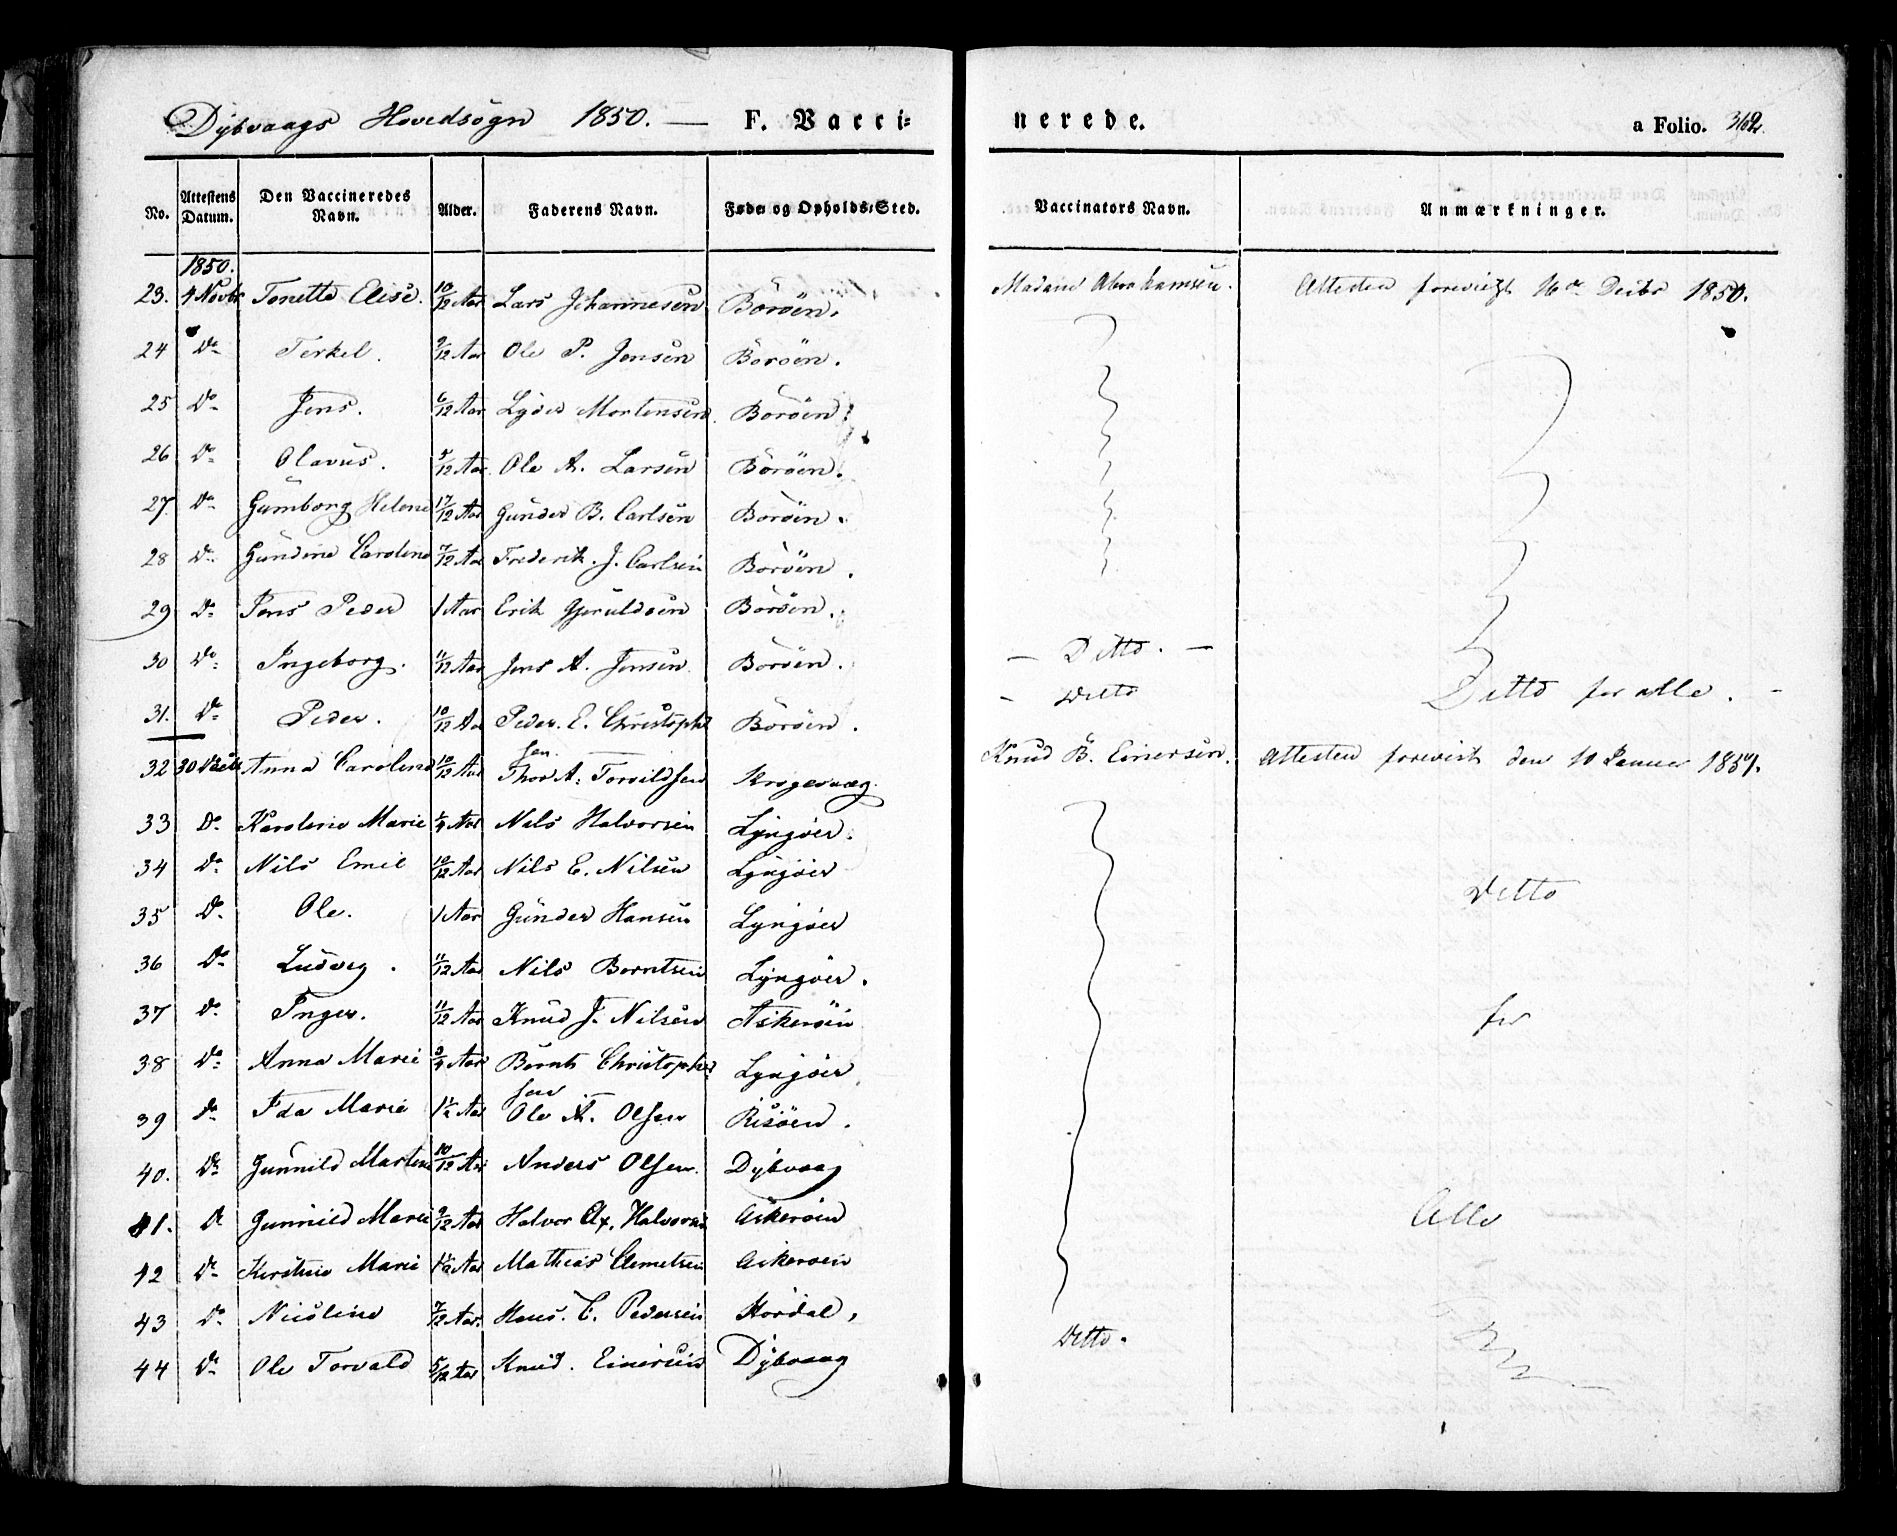 Dybvaags Hovedsogn 1850. — F. Vacci-
nerede. a Folio. 362.
No. Attestens Datum. Den Vaccineredes Navn. Alder. Faderens Navn. Føde- og Opholds-Sted. Vaccinators Navn. Anmærkninger.
1850.
23. 4 Novbr Tonette Elise. 10/12 Aar Lars Johannesen Boröen. Madame Abrahamsen. Attesten foreviist 16de Decbr 1850.
24 Do Terkel. 9/12 Aar Ole P. Jensen Boröen.
25 Do Jens. 6/12 Aar Lyder Mortensen Boröen.
26 Do Olavus. 5/12 Aar Ole A. Larsen Boröen.
27. Do Gunborg Helene 17/12 Aar Gunder B. Carlsen Boröen.
28 Do Gundine Caroline 7/12 Aar Frederik J. Carlsen Boröen.
29 Do Jens Peder 1 Aar Erik Gjeruldsen Boröen.
30 Do Ingeborg. 11/12 Aar Jens A. Jensen Boröen. — Ditto. —
31. Do Peder. 10/12 Aar Peder E. Christophersen Boröen. - Ditto Ditto for alle. -
32 30 Decbr Anna Caroline 10/12 Aar Thor A. Torvildsen Krogevaag. Knud B. Einersen. Attesten forevist den 10 Januar 1851.
33 Do Karoline Marie 1/4 Aar Nels Halvorsen Lyngöer.
34 Do Nils Emil 10/12 Aar Nils E. Nilsen Lyngöer
35 Do Ole. 1 Aar Gunder Hansen Lyngöer Ditto
36 Do Ludvig. 11/12 Aar Nils Berntsen Lyngöer.
37 Do Inger. 11/12 Aar Knud J. Nilsen Askeröen for
38 Do Anna Marie 3/4 Aar Bernt Christophersen Lyngöer
39 Do Ida Marie 1½ Aar Ole A. Olsen Risöen.
40. Do Gunnild Martine 10/12 Aar Anders Olsen Dybvaag
41. Do Gunnild Marie 9/12 Aar Halvor Ax. Halvorsen Askeröen Alle
42 Do Kirstine Marie 1½ Aar Mathias Clemetsen Askeroen
43 Do Nicoline 7/12 Aar. Hans C. Pedersen Hordal,
44 Do Ole Torvald 5/12 Aar Knud Einersen Dybvaag Ditto.